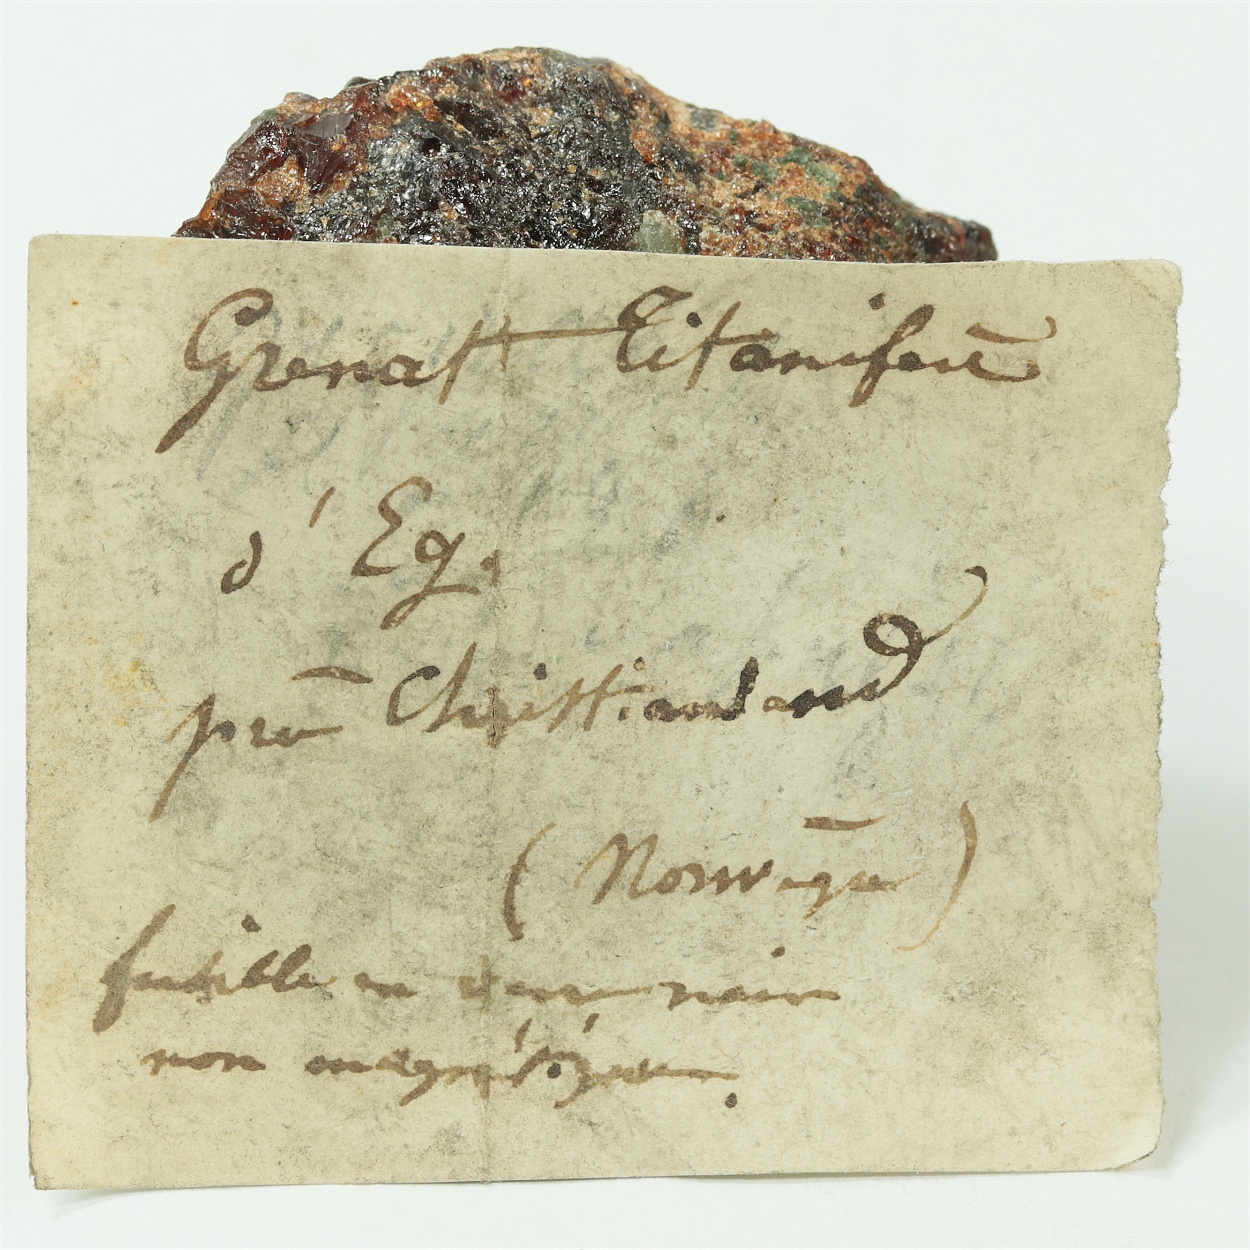 Grenat Titanifère
d'Eg.
près Christiansand
(Norwège)
fusible en verre noir
non magnétique.